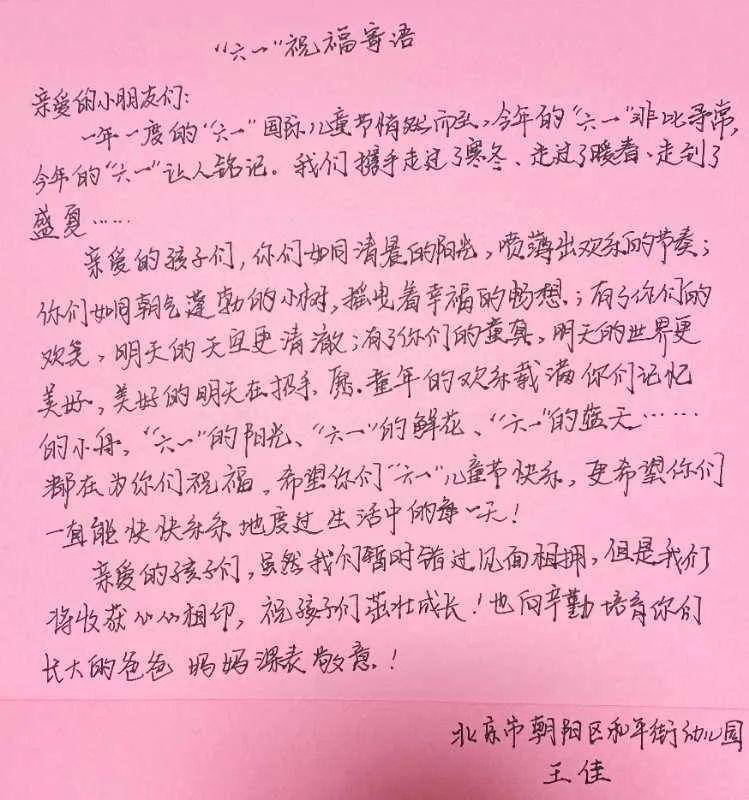 “六一”祝福寄语
亲爱的小朋友们:
一年一度的“六一”国际儿童节悄然而至,今年的“六一”非比寻常,
今年的“六一”让人铭记。我们携手走过了寒冬、走过了暖春、走到了
盛夏……
亲爱的孩子们,你们如同清晨的阳光,喷薄出欢乐的节奏;
你们如同朝气蓬勃的小树,摇曳着幸福的畅想;有了你们的
欢笑,明天的天空更清澈;有了你们的童真,明天的世界更
美好,美好的明天在招手,愿童年的欢乐载满你们记忆
的小舟,“六一”的阳光、“六一”的鲜花、“六一”的蓝天……
都在为你们祝福,希望你们“六一”儿童节快乐,更希望你们
一直能快快乐乐地度过生活中的每一天!
亲爱的孩子们,虽然我们暂时错过见面相拥,但是我们
将收获心心相印,祝孩子们茁壮成长!也向辛勤培育你们
长大的爸爸妈妈深表敬意!
北京市朝阳区和平街幼儿园
王佳